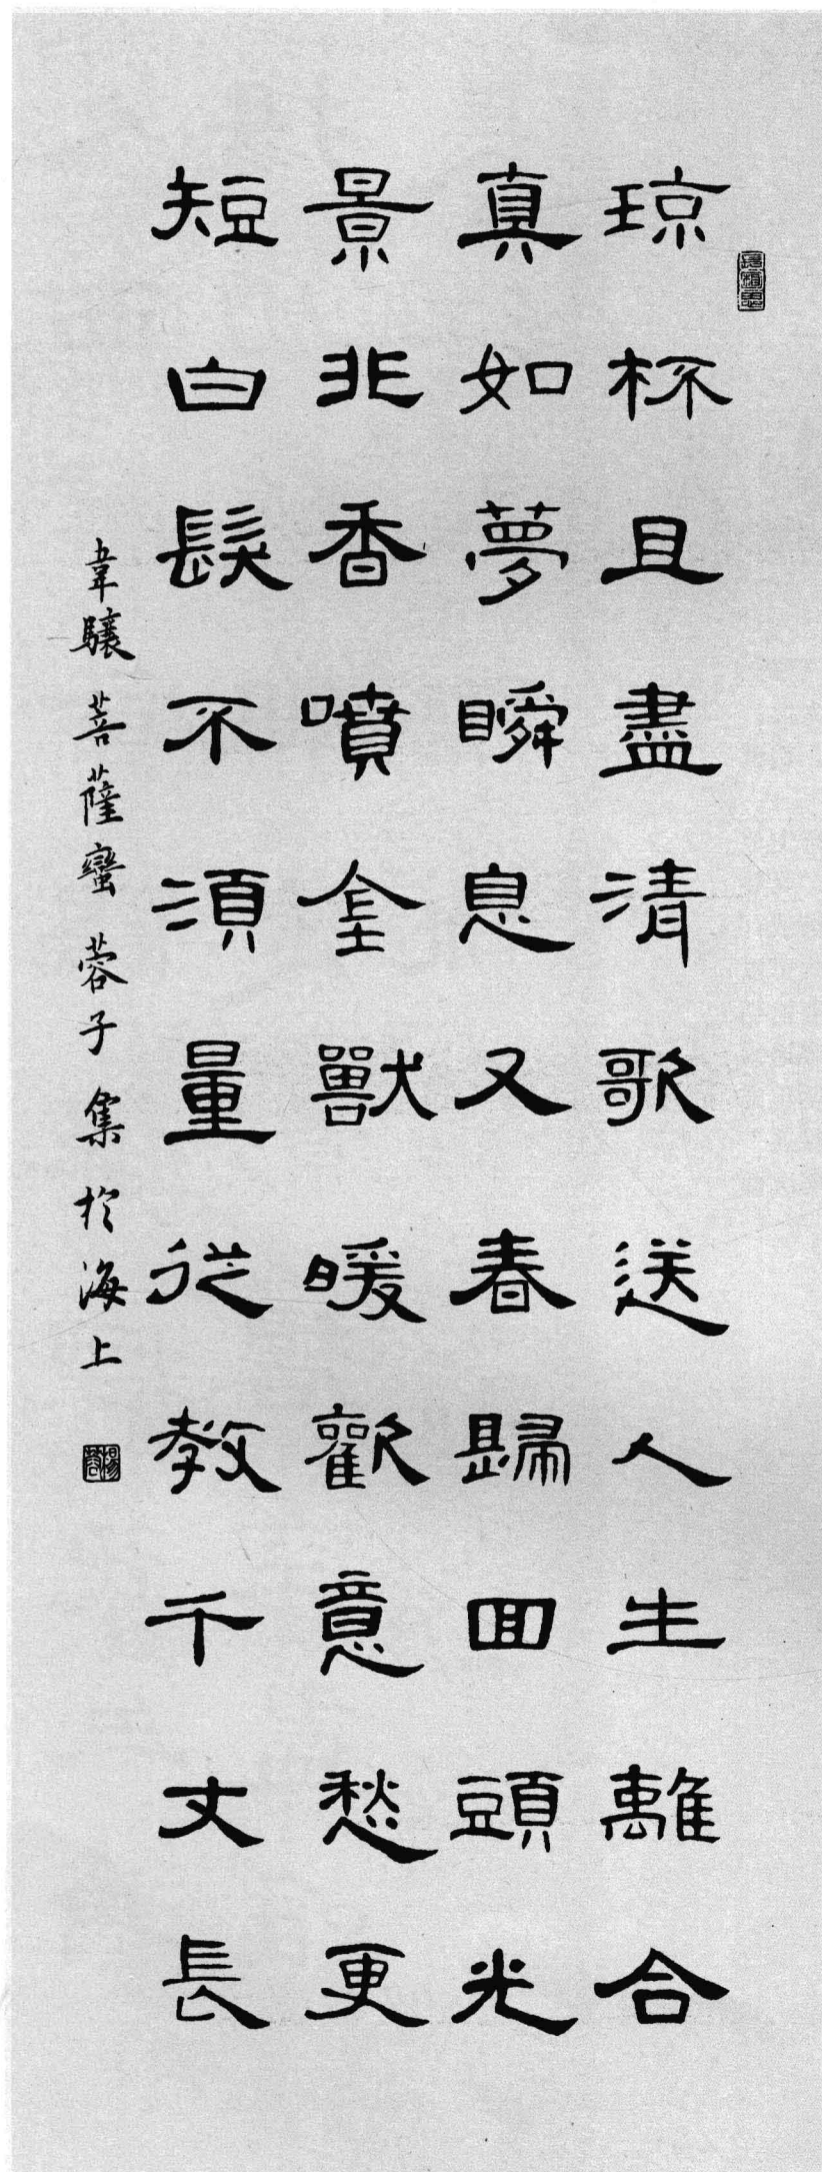 琼杯且盡清歌送人生離合
真如夢瞬息又春歸回頭光
景非香噴金獸暖歡意愁更
短白髮不須量從教千丈長
韋驤菩薩蠻蓉子集於海上
楊蓉